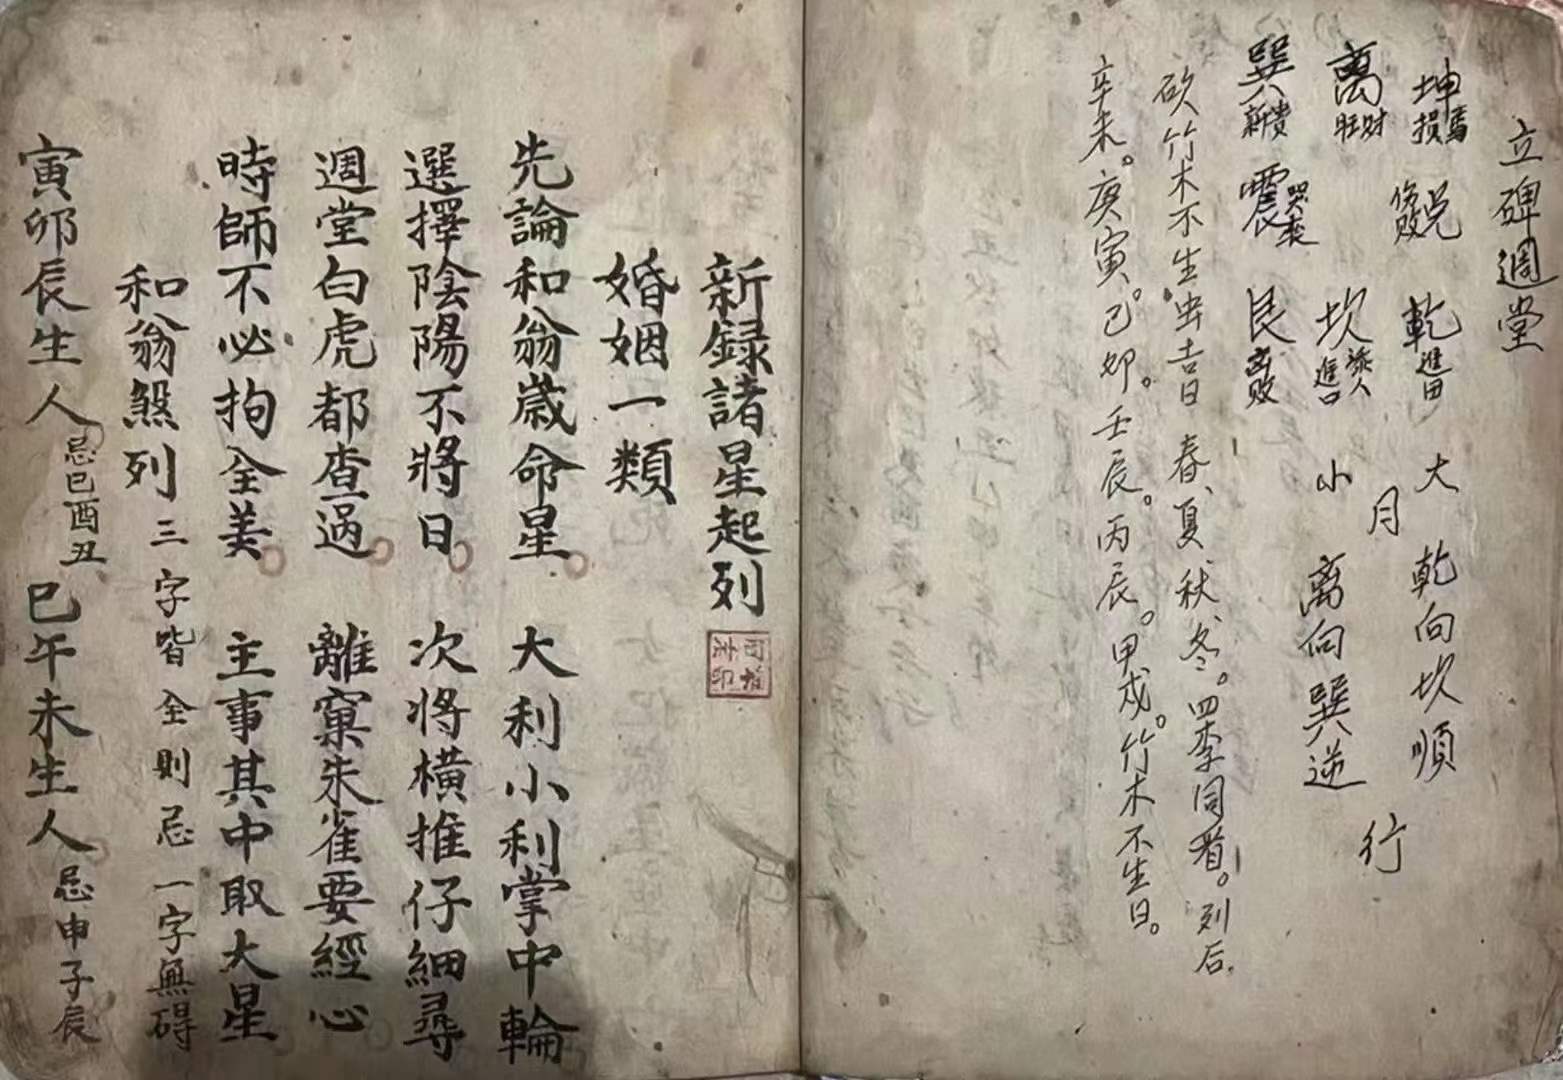 立碑週堂
坤 損 兌 伤败 乾 進田 大 乾向坎順
月 行
离 财旺 坎 添人進口 小 离向巽逆
巽 貴新 震 哭丧 艮 离败
砍竹木不生虫吉日 春、夏、秋、冬。四季同看。列后.
辛未。庚寅。己卯。壬辰。丙辰。甲戍。竹木不生日。
新録諸星起列
婚姻一類
先論和翁歲命星。 大利小利掌中輪
選擇陰陽不將日。 次將橫推仔細尋
週堂白虎都查過。 離窠朱雀要經心
時師不必拘全美。 主事其中取大星
和翁煞列 三字皆全則忌一字無碍
寅卯辰生人 忌巳酉丑 巳午未生人 忌申子辰